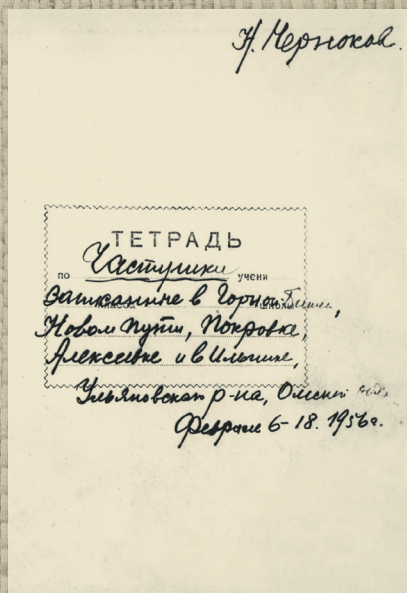 Н. Черноков.
ТЕТРАДЬ
по Частушки учени
класса школы
записанные в Горьк.
Новом Пути, Покровке,
Алексеевке и в Ильинке,
Ульяновском р-на, Омской обл.
Февраль 6-18. 1956 г.